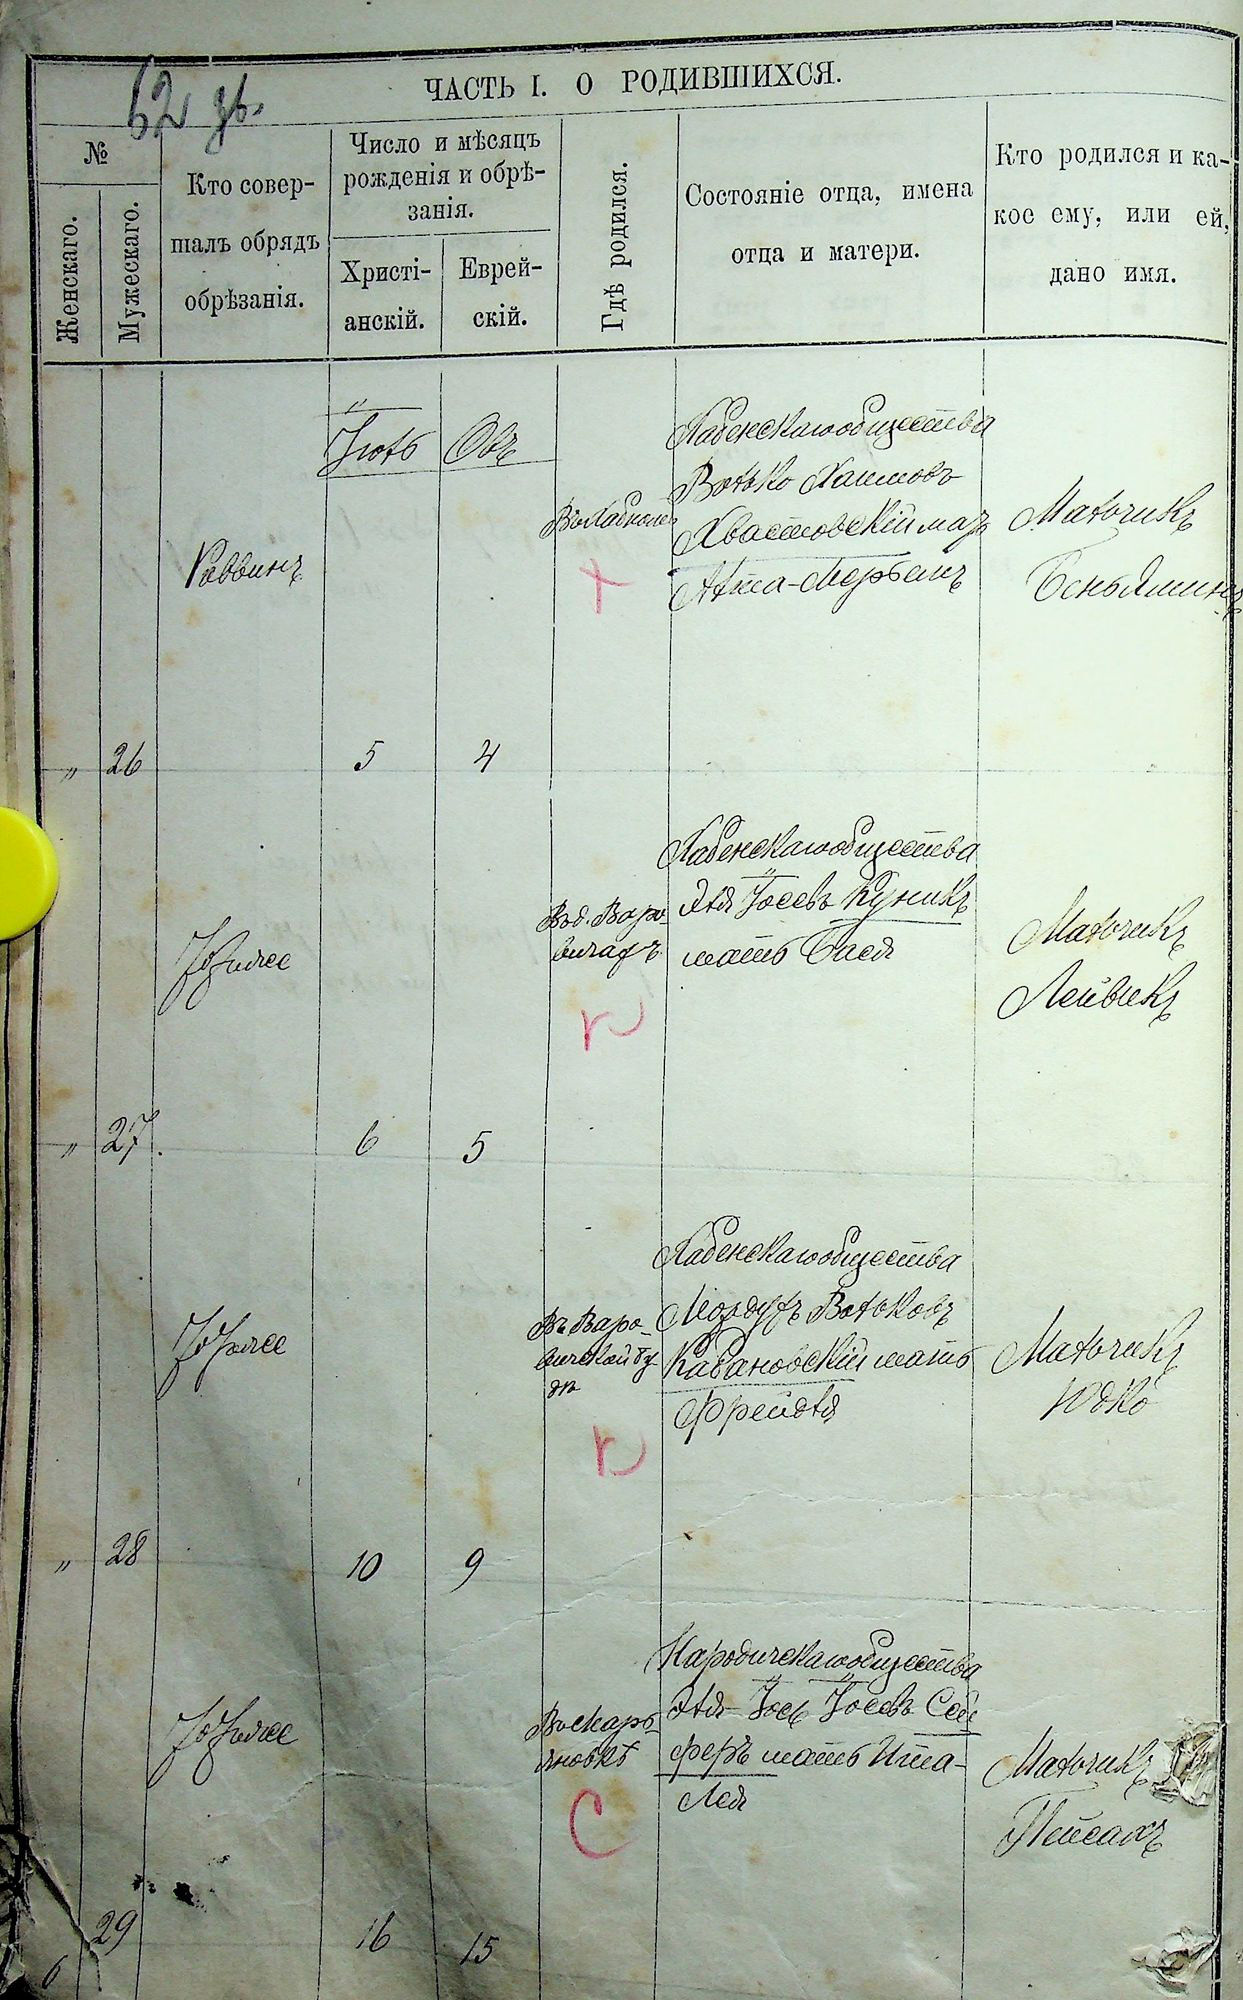 62
ЧАСТЬ I. О РОДИВШИХСЯ.
№
Женскаго.
Мужескаго.
Кто совер-
шалъ обрядъ
обрѣзанія.
Число и мѣсяцъ
рожденія и обрѣ-
занія.
Христі-
анскій.
Еврей-
скій.
Гдѣ родился.
Состояніе отца, имена
отца и матери.
Кто родился и ка-
кое ему, или ей,
дано имя.
Раввинъ
Іюль
Овъ
Хабенскаго общества
Волько Хаимовъ
Хвастовскій мать
Мальчикъ
Беньяминъ
" 26 5 4
Въ д. Варо-
вичахъ
Хабенскаго общества
Эля Іосевъ Куникъ
мать Бася
Мальчикъ
Лейвикъ
" 27. 6 5
Въ Варо-
вичской бу-
дѣ
Хабенскаго общества
Мордухъ Вольковъ
Кабановскій мать
Фрейдля
Мальчикъ
Юдко
" 28 10 9
Въ Марь-
яновкѣ
Народичскаго общества
Эля-Іось Іосевъ Сей-
феръ мать Ита-
Лея
Мальчикъ
Пейсахъ
29 16 15